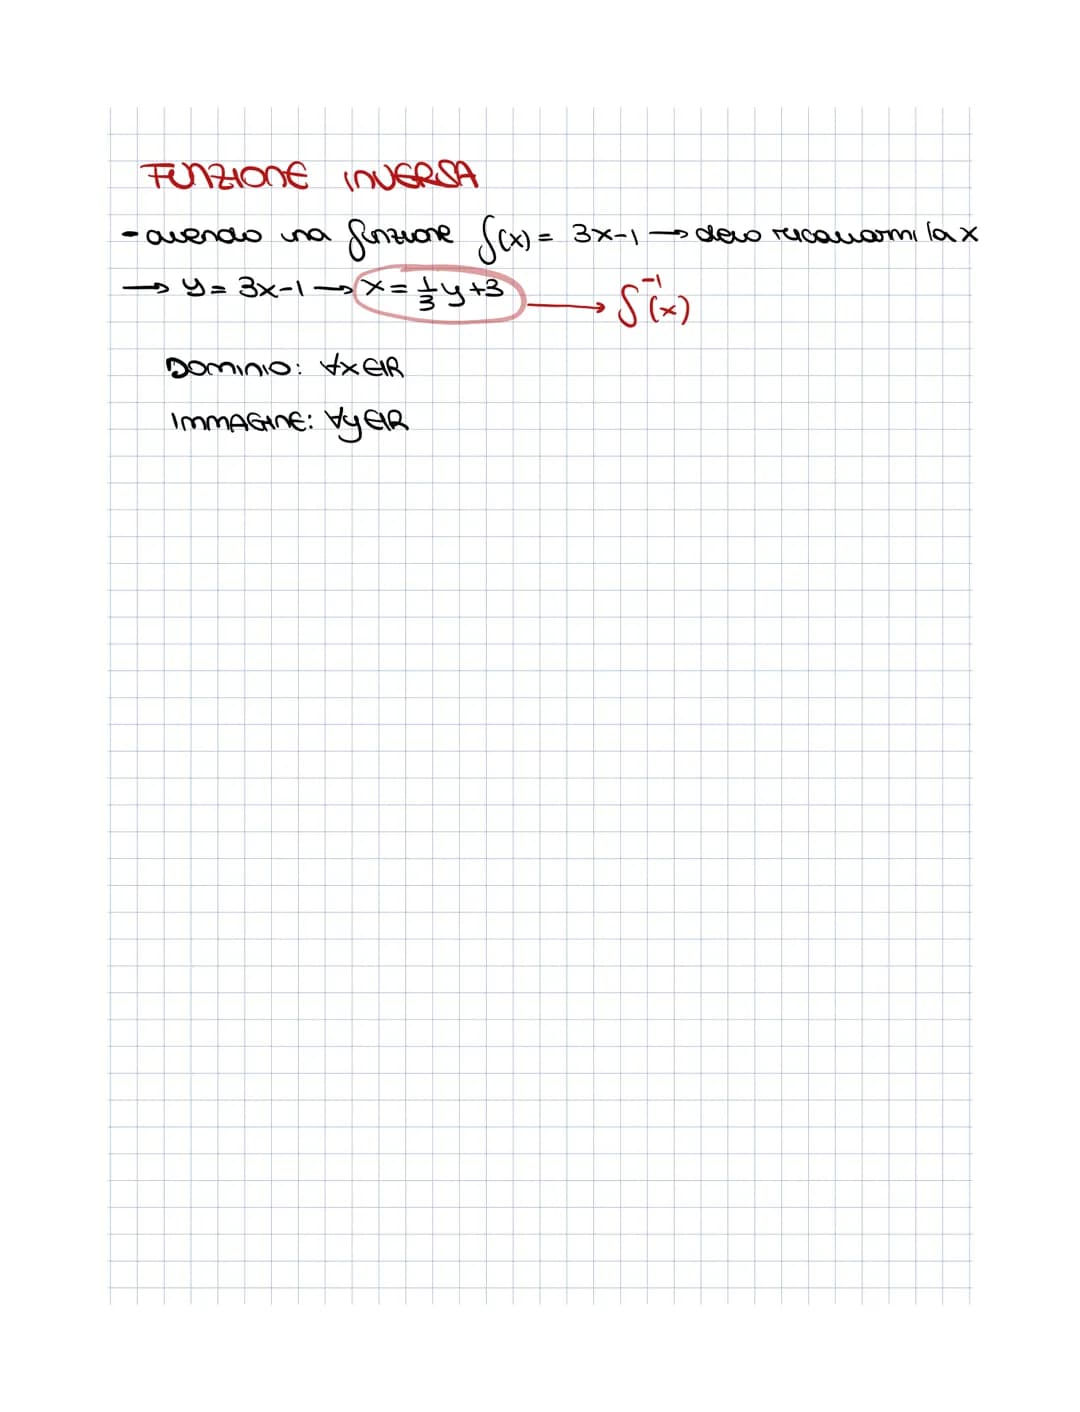 FUNZIONE INVERSA
- avendo una funzione f(x) = 3x-1 → devo ricavarmi la x
→ y = 3x-1 → x = 1/3 y + 3 → f⁻¹(x)
DOMINIO: ∀x∈ℝ
IMMAGINE: ∀y∈ℝ